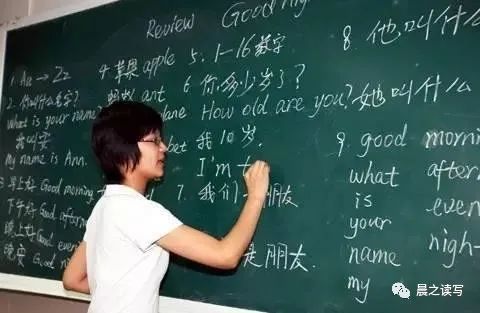 Review Good
1. Aa → Zz
2. 你叫什么名字?
What is your name
我叫安
my name is Ann.
3 早上好 Good morning
下午好 Good after
晚上好 Good even
晚安 Good
4 苹果 apple
ant
5. 1—16数字
6 你多少岁了?
How old are you?
我10岁.
I'm t
7. 我们 朋友
是朋友.
8. 他叫什么
她叫什么
9. good morni
what aftern
is even
your
name nigh
my
晨之读写